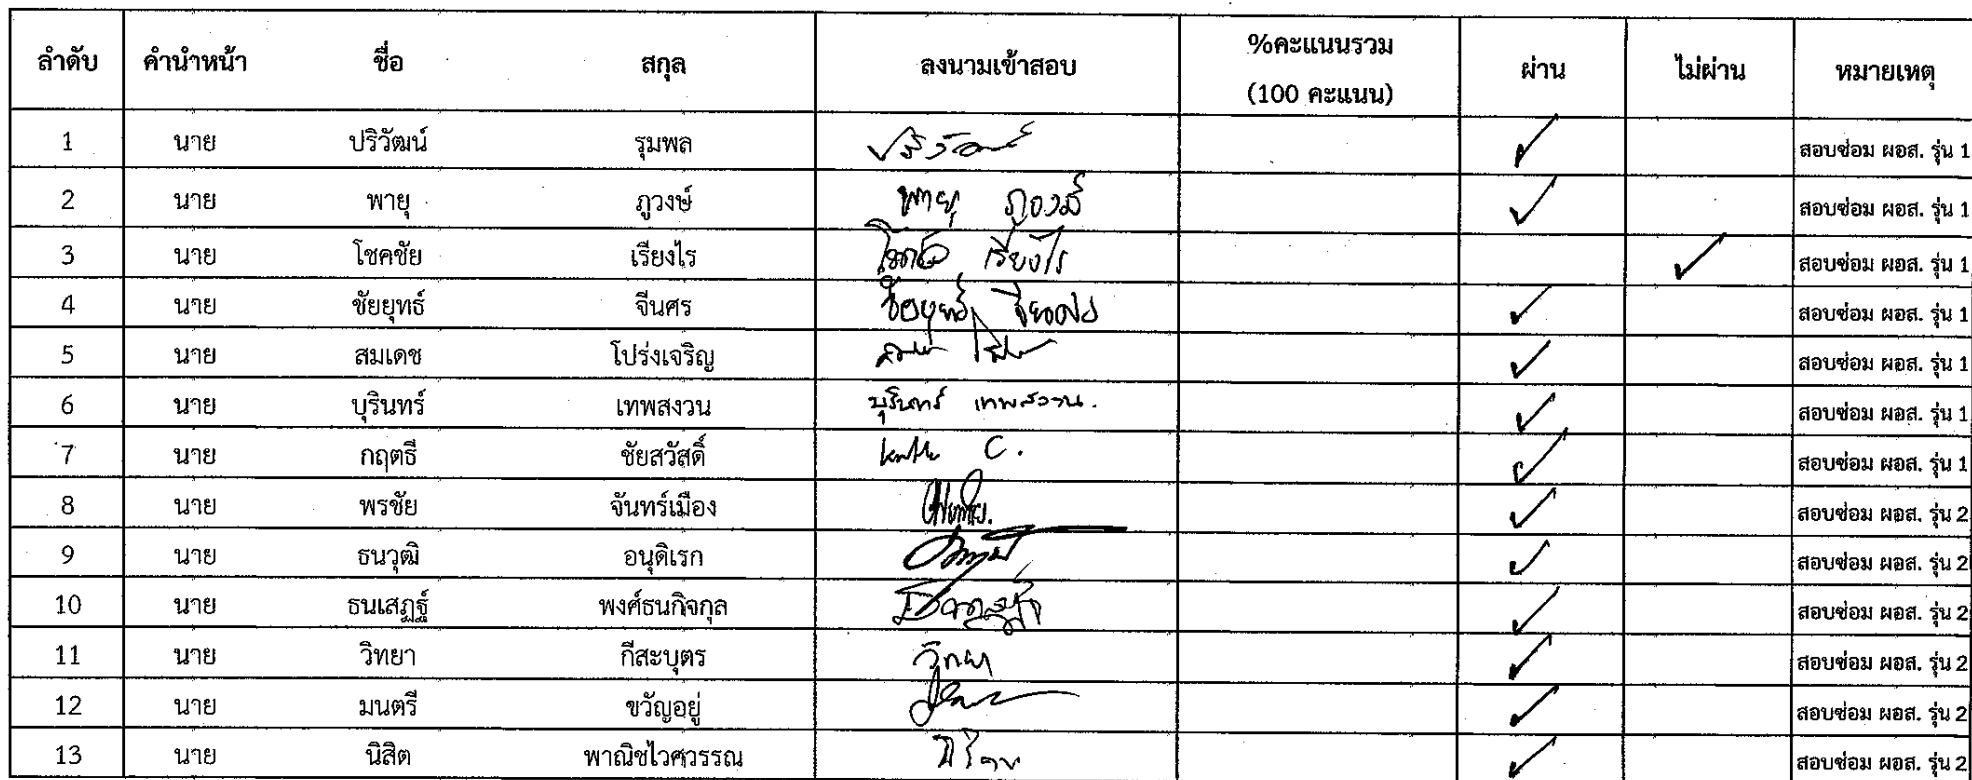 ลำดับ คำนำหน้า ชื่อ สกุล ลงนามเข้าสอบ %คะแนนรวม (100 คะแนน) ผ่าน ไม่ผ่าน หมายเหตุ
1 นาย ปริวัฒน์ รุมพล ✓ สอบซ่อม ผอส. รุ่น 1
2 นาย พายุ ภูวงษ์ พายุ ภูวงษ์ ✓ สอบซ่อม ผอส. รุ่น 1
3 นาย โชคชัย เรียงไร โชคชัย เรียงไร ✓ สอบซ่อม ผอส. รุ่น 1
4 นาย ชัยยุทธ์ จีนศร ✓ สอบซ่อม ผอส. รุ่น 1
5 นาย สมเดช โปร่งเจริญ ✓ สอบซ่อม ผอส. รุ่น 1
6 นาย บุรินทร์ เทพสงวน บุรินทร์ เทพสงวน. ✓ สอบซ่อม ผอส. รุ่น 1
7 นาย กฤตธี ชัยสวัสดิ์ C. ✓ สอบซ่อม ผอส. รุ่น 1
8 นาย พรชัย จันทร์เมือง ✓ สอบซ่อม ผอส. รุ่น 2
9 นาย ธนวุฒิ อนุดิเรก ✓ สอบซ่อม ผอส. รุ่น 2
10 นาย ธนเสฏฐ์ พงศ์ธนกิจกุล ✓ สอบซ่อม ผอส. รุ่น 2
11 นาย วิทยา กีสะบุตร วิทยา ✓ สอบซ่อม ผอส. รุ่น 2
12 นาย มนตรี ขวัญอยู่ ✓ สอบซ่อม ผอส. รุ่น 2
13 นาย นิสิต พาณิชไวศวรรณ ✓ สอบซ่อม ผอส. รุ่น 2